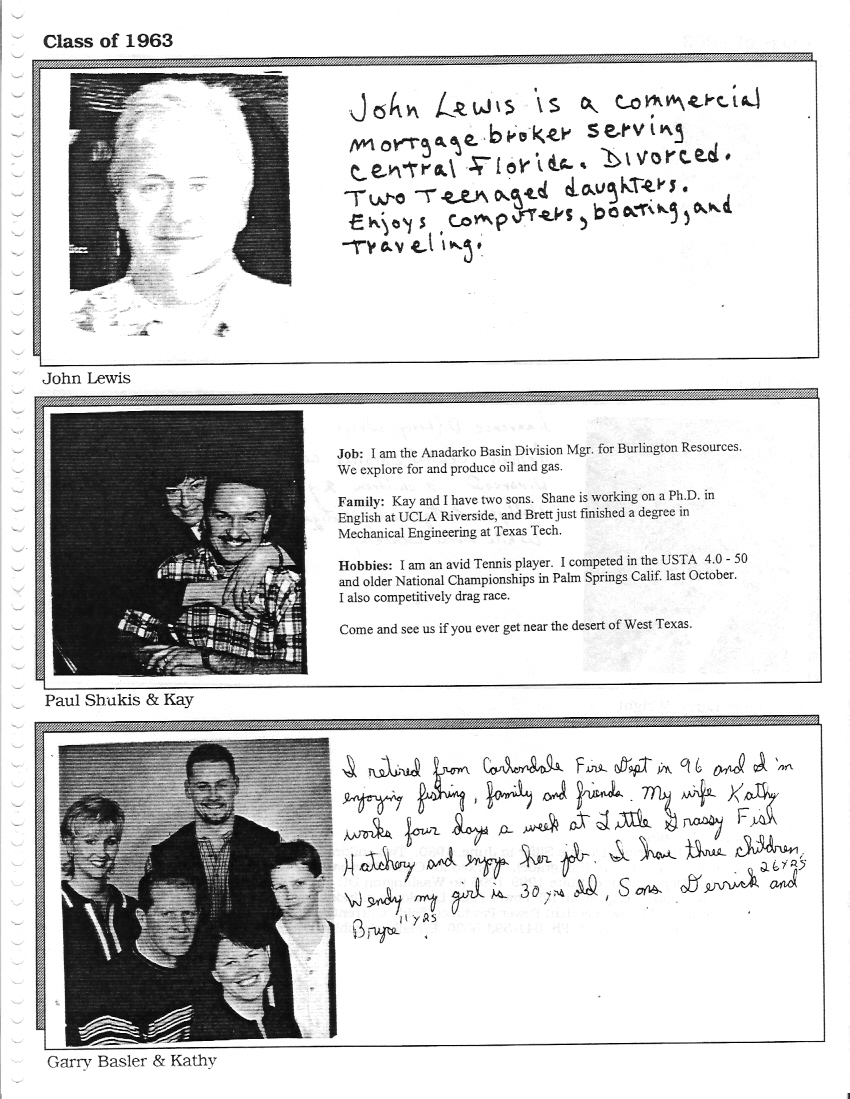 Class of 1963
John Lewis is a commercial
mortgage broker serving
central Florida. Divorced.
Two Teenaged daughters.
Enjoys computers, boating, and
traveling.
John Lewis
Job: I am the Anadarko Basin Division Mgr. for Burlington Resources.
We explore for and produce oil and gas.
Family: Kay and I have two sons. Shane is working on a Ph.D. in
English at UCLA Riverside, and Brett just finished a degree in
Mechanical Engineering at Texas Tech.
Hobbies: I am an avid Tennis player. I competed in the USTA 4.0 - 50
and older National Championships in Palm Springs Calif. last October.
I also competitively drag race.
Come and see us if you ever get near the desert of West Texas.
Paul Shukis & Kay
I retired from Carbondale Fire Dept in 96 and I'm
enjoying fishing, family and friends. My wife Kathy
works four days a week at Little Grassy Fish
Hatchery and enjoys her job. I have three children,
Wendy my girl is 30 yrs old, Sons Derrick 26 YRS and
Bryce 11 YRS.
Garry Basler & Kathy